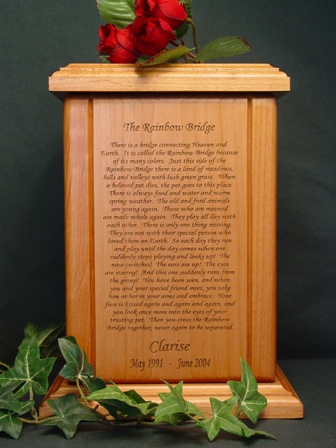 The Rainbow Bridge
There is a bridge connecting Heaven and
Earth. It is called the Rainbow Bridge because
of its many colors. Just this side of the
Rainbow Bridge there is a land of meadows,
hills and valleys with lush green grass. When
a beloved pet dies, the pet goes to this place.
There is always food and water and warm
spring weather. The old and frail animals
are young again. Those who are maimed
are made whole again. They play all day with
each other. There is only one thing missing.
They are not with their special person who
loved them on Earth. So each day they run
and play until the day comes when one
suddenly stops playing and looks up! The
nose twitches! The ears are up! The eyes
are staring! And this one suddenly runs from
the group! You have been seen, and when
you and your special friend meet, you take
him or her in your arms and embrace. Your
face is kissed again and again and again, and
you look once more into the eyes of your
trusting pet. Then you cross the Rainbow
Bridge together, never again to be separated.
Clarise
May 1991 - June 2004